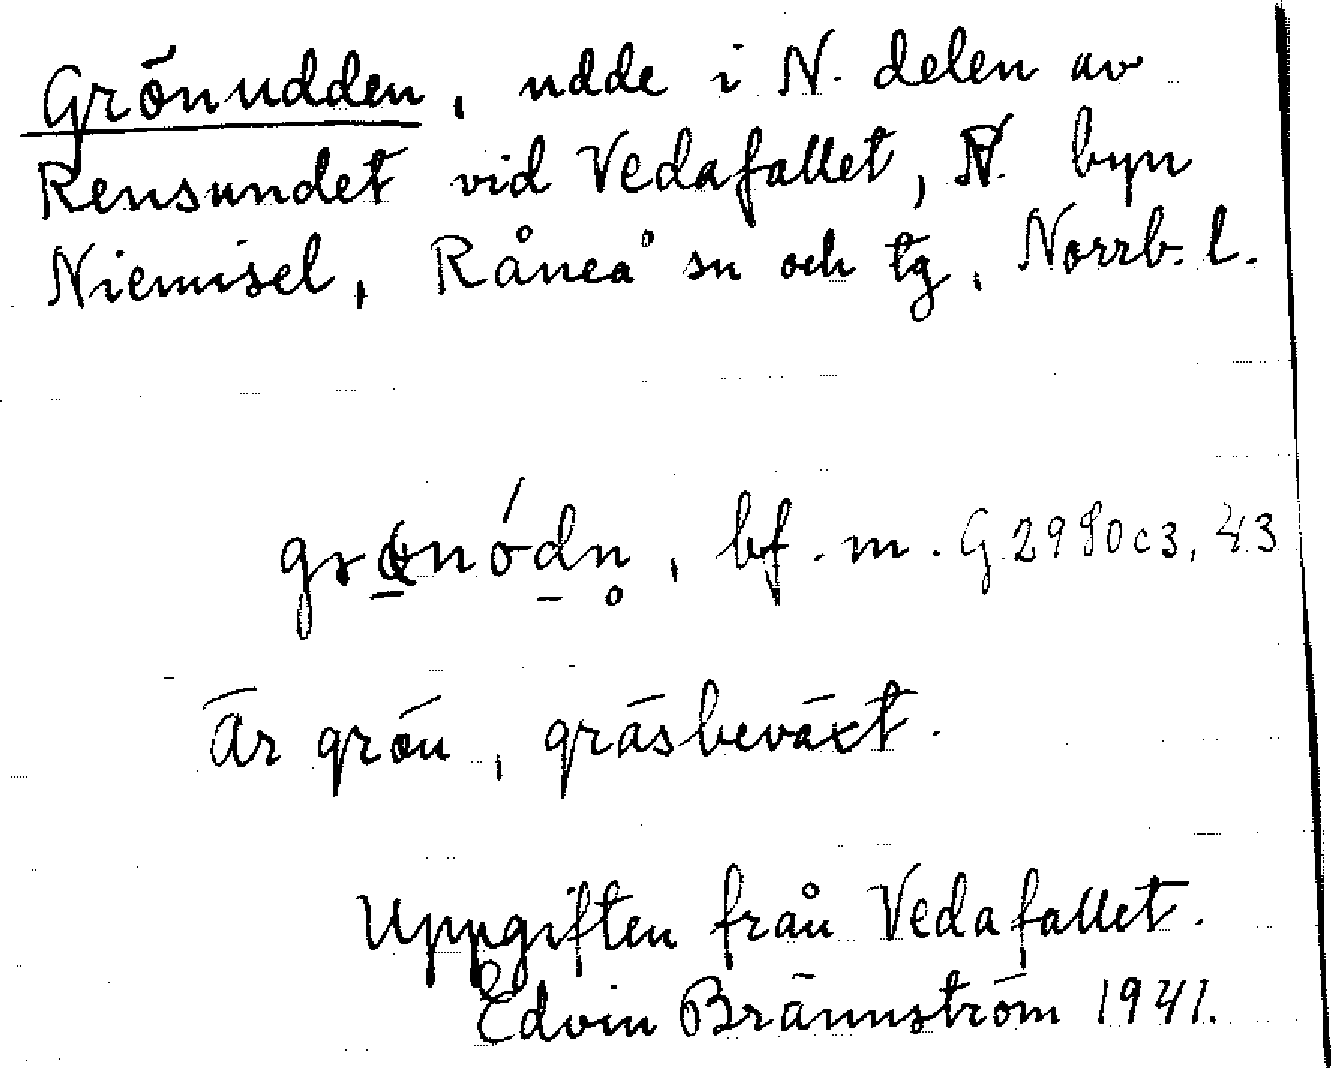 Grönudden, udde i N. delen av
Rensundet vid Vedafallet, N. byn
Niemisel, Råneå sn och tg, Norrb. l.
bf. m. G 2980 c3, 43
Är grön, gräsbeväxt.
Uppgiften från Vedafallet.
Edvin Brännström 1941.